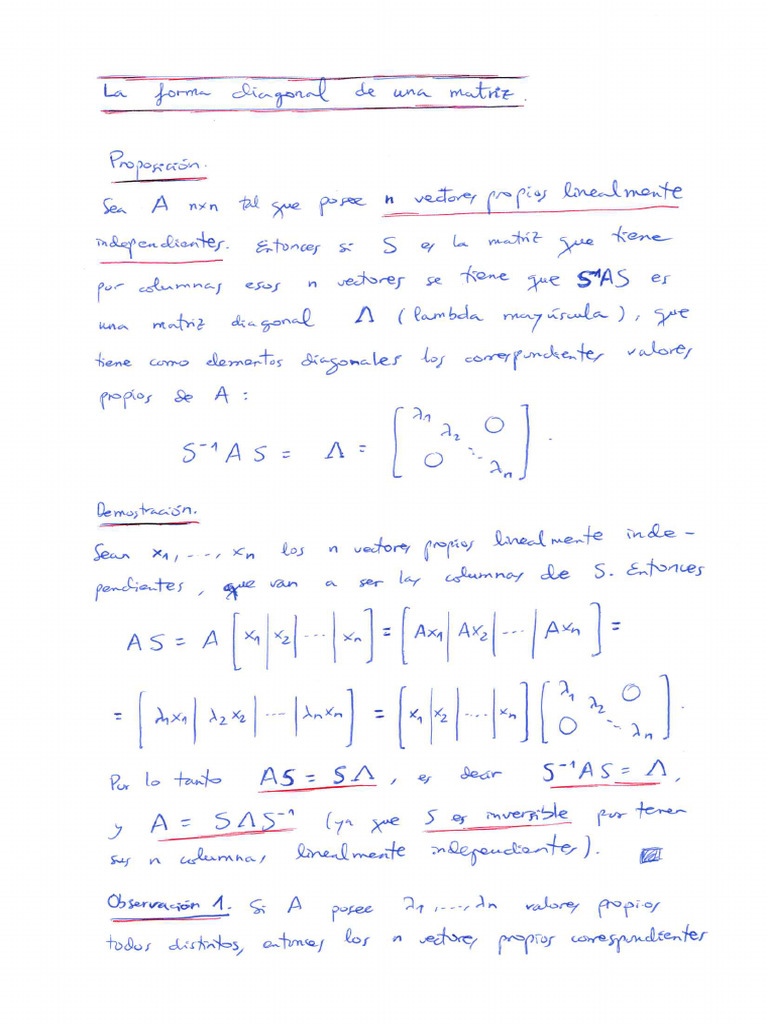 La forma diagonal de una matriz.
Proposición.
Sea A n×n tal que posee n vectores propios linealmente
independientes. Entonces si S es la matriz que tiene
por columnas esos n vectores se tiene que S⁻¹AS es
una matriz diagonal Λ (lambda mayúscula), que
tiene como elementos diagonales los correspondientes valores
propios de A:
S⁻¹AS = Λ = [λ₁ λ₂ 0 0 ⋱ λₙ].
Demostración.
Sean x₁, ..., xₙ los n vectores propios linealmente inde-
pendientes, que van a ser las columnas de S. Entonces
AS = A [x₁ | x₂ | ... | xₙ] = [Ax₁ | Ax₂ | ... | Axₙ] =
= [λ₁x₁ | λ₂x₂ | ... | λₙxₙ] = [x₁ | x₂ | ... | xₙ] [λ₁ λ₂ 0 0 ⋱ λₙ].
Por lo tanto AS = SΛ, es decir S⁻¹AS = Λ,
y A = SΛS⁻¹ (ya que S es inversible por tener
sus n columnas linealmente independientes).
Observación 1. Si A posee λ₁, ..., λₙ valores propios
todos distintos, entonces los n vectores propios correspondientes